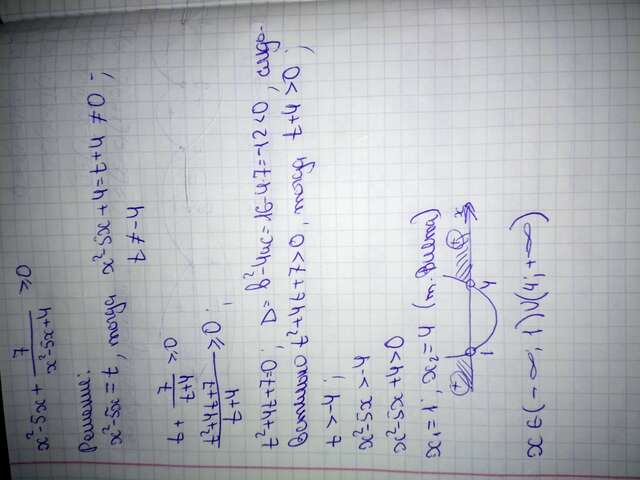 x²-5x + 7/(x²-5x+4) ≥0
Решение:
x²-5x = t, тогда x²-5x+4=t+4 ≠0 ;
t ≠ -4
t + 7/(t+4) ≥0
(t²+4t+7)/(t+4) ≥0 ;
t²+4t+7=0 ; D= b²-4ac=16-4·7=-12<0, следо-
вательно t²+4t+7>0, тогда t+4>0 ;
t >-4 ;
x²-5x >-4
x²-5x+4>0
x₁=1 ; x₂=4 (т. Виета)
+ + x
1 4
x ∈ (-∞; 1)∪(4; +∞)